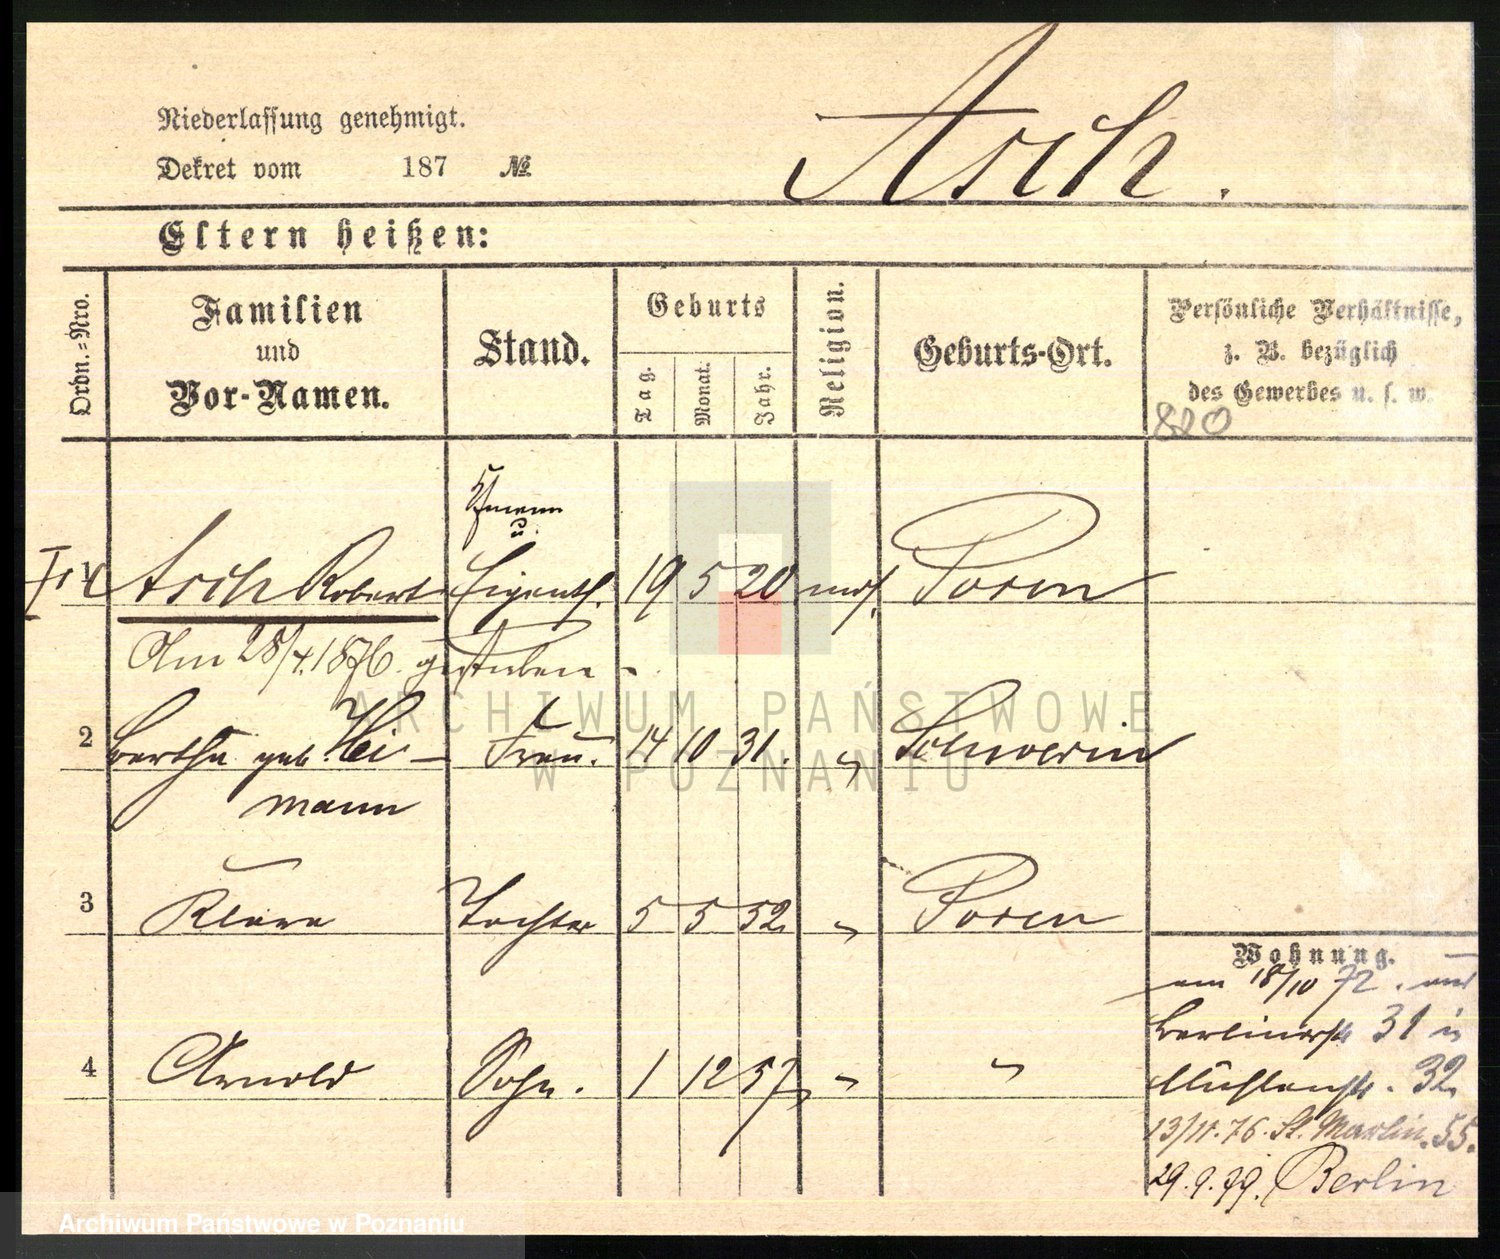 Asch.
Niederlassung genehmigt.
Dekret vom 187 №
Eltern heißen:
Ordn.=Nro.
Familien
und
Vor-Namen.
Stand.
Geburts
Tag.
Monat.
Jahr.
Religion.
Geburts-Ort.
Persönliche Verhältnisse,
z. B. bezüglich
des Gewerbes u. s. w.
Kfmann
u.
Asch Robert Eigenth. 19 5 20 mos. Posen
Am 28/4. 1876. gestorben -
2 Bertha geb. Hei- Frau. 14 10 31. " Schwerin
mann
3 Klara Tochter 5 5 52 " Posen
4 Arnold Sohn. 1 12 57 " "
Wohnung.
am 18/10 72.
Berlinerstr 31 in
Mühlenstr. 32
13/11. 76. St. Martin. 55.
29. 9. 79. Berlin
ARCHIWUM PAŃSTWOWE
W POZNANIU
Archiwum Państwowe w Poznaniu